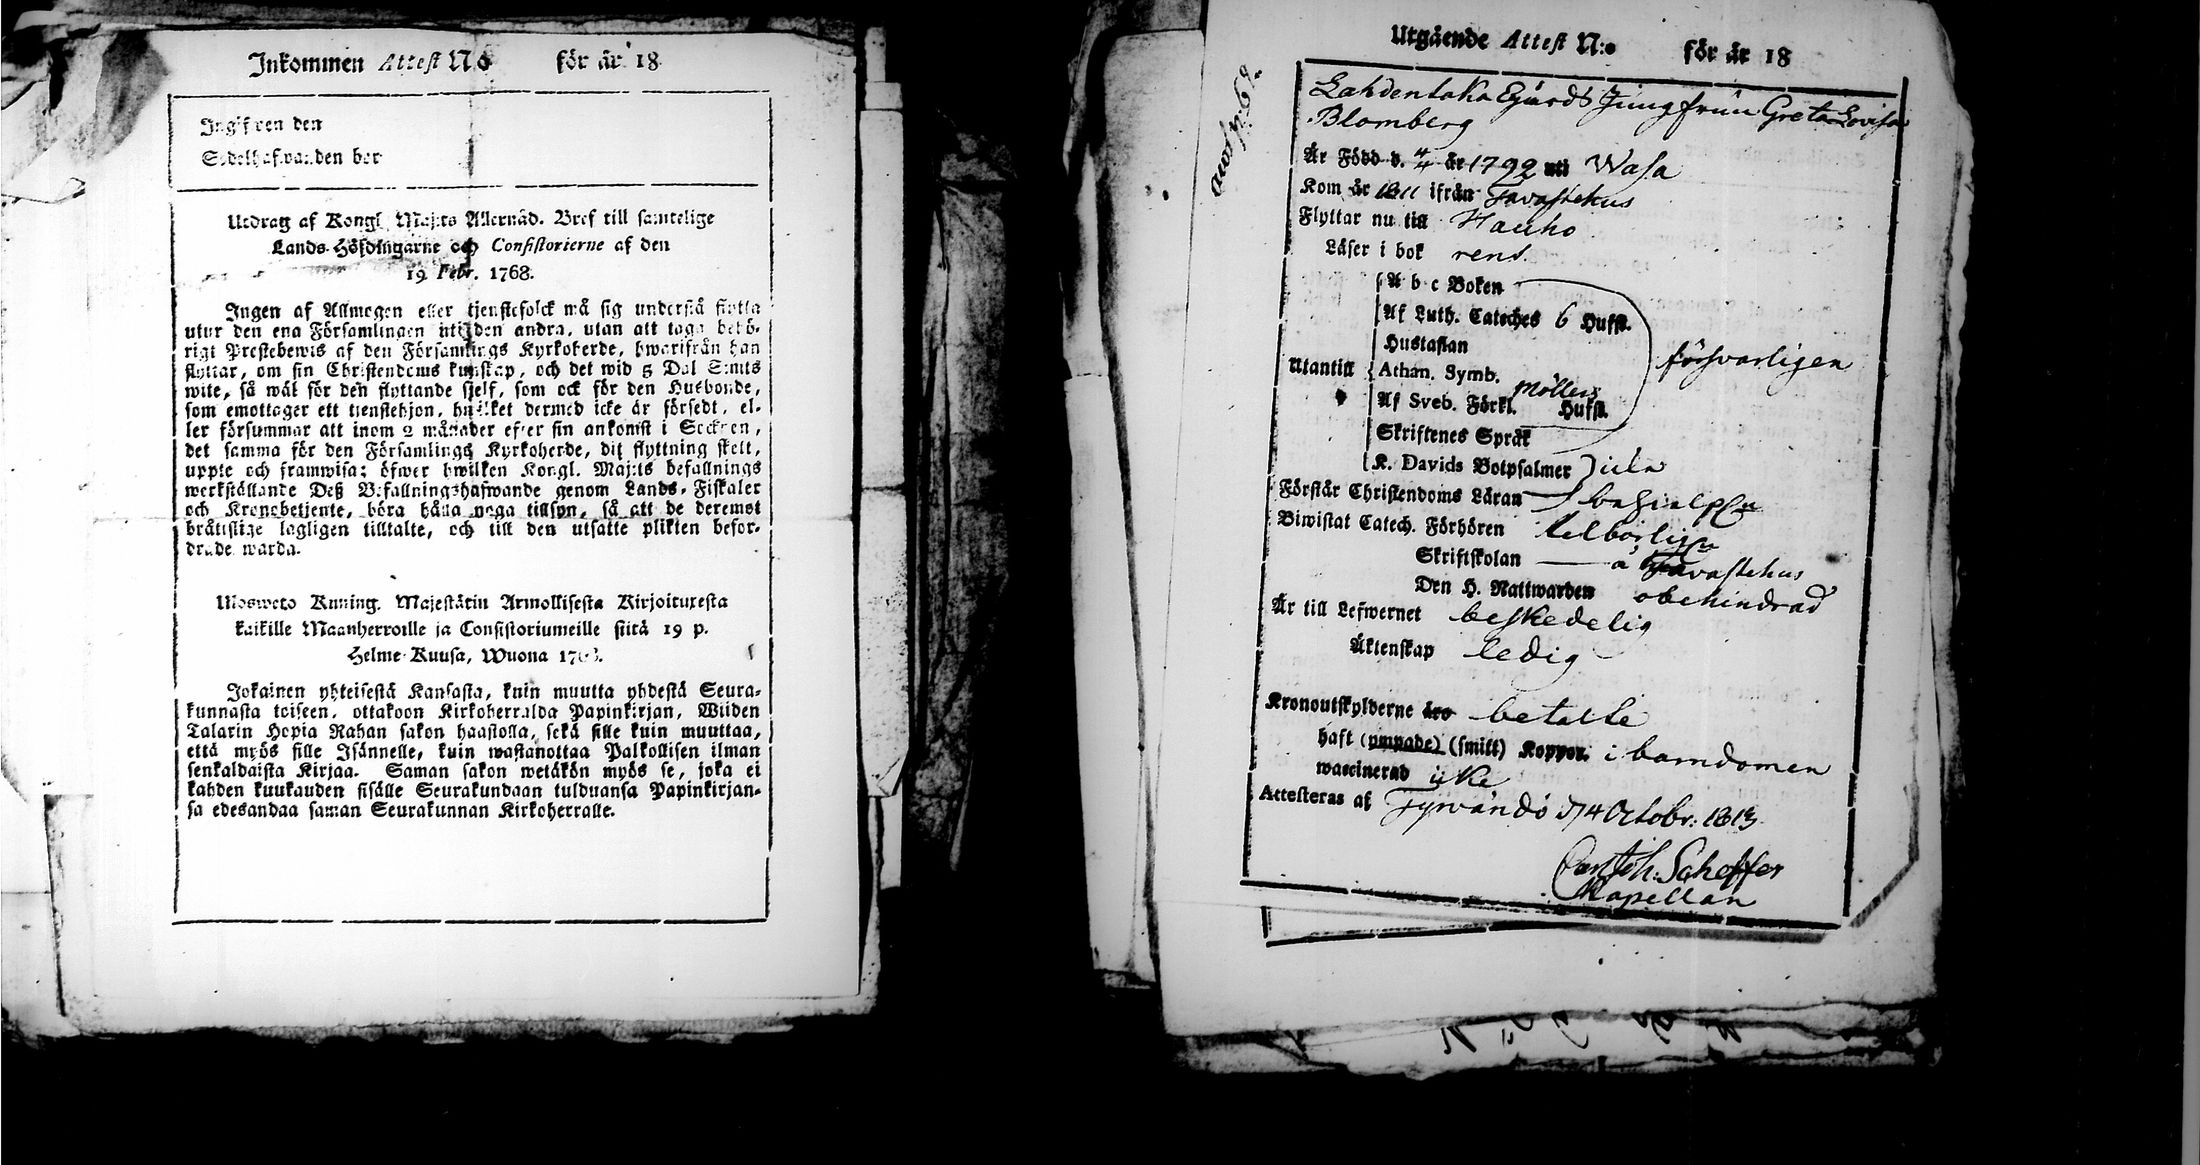 Inkommen Attest N:o för år 18
Ingifven den
Sedelhafwanden bor
Utdrag af Kongl. Maj:ts Allernåd. Bref till samtelige
Lands-Höfdingarne och Consistorierne af den
19 Febr. 1768.
Ingen af Allmogen eller tjenstefolck må sig understå flytta
utur den ena Församlingen uti den andra, utan att taga behö-
rigt Prestebewis af den Församlings Kyrkoherde, hwarifrån han
flyttar, om sin Christendoms kunskap, och det wid 5 Dal. S:mts
wite, så wäl för den flyttande sjelf, som ock för den Husbonde,
som emottager ett tjenstehjon, hwilket dermed icke är försedt, el-
ler försummar att inom 2 månader efter sin ankomst i Socknen,
det samma för den Församlings Kyrkoherde, dit flyttning skett,
uppte och framwisa; öfwer hwilken Kongl. Maj:ts befallnings
werkställande Deß Befallningshafwande genom Lands-Fiskaler
och Kronobetjente, böra hålla noga tillsyn, så att de deremot
bråttslige lagligen tilltalte, och till den utsatte plikten befor-
drade warda.
Ulosweto Kuning. Majestätin Armollisesta Kirjoituxesta
kaikille Maanherroille ja Consistoriumeille siitä 19 p.
Helme-Kuusa, Wuona 1768.
Jokainen yhteisestä Kansasta, kuin muutta yhdestä Seura-
kunnasta toiseen, ottakoon Kirkoherralda Papinkirjan, Wiiden
Talarin Hopia Rahan sakon haastolla, sekä sille kuin muuttaa,
että myös sille Isännelle, kuin wastanottaa Palkollisen ilman
senkaldaista Kirjaa. Saman sakon wetäkön myös se, joka ei
kahden kuukauden sisälle Seurakundaan tulduansa Papinkirjan-
sa edesandaa saman Seurakunnan Kirkoherralle.
Utgående Attest N:o för år 18
Lahdentaka Egards Jungfrun Greta Lovisa
Blomberg
Är Född d. 4/4 år 1792 uti Wasa
Kom år 1811 ifrån Tavastehus
Flyttar nu till Hauho
Läser i bok rent
A b c Boken
Af Luth. Cateches 6 Hufst.
Hustaflan
Utantill Athan. Symb. försvarligen
Af Sveb. Förkl. Möllers Hufst.
Skriftenes Språk
K. Davids Botpsalmer
Förstår Christendoms Läran
Biwistat Catech. Förhören
Skriftskolan å Tavastehus
Den H. Nattwarden obehindrad
Är till Lefwernet beskedelig
Äktenskap ledig
Kronoutskylderne äro betalte
haft (ympade) (smitt) Koppor. i barndomen
waccinerad icke
Attesteras af Tyrwändö d 14 Octobr: 1813
Carl Joh: Scheffer
Kapellan